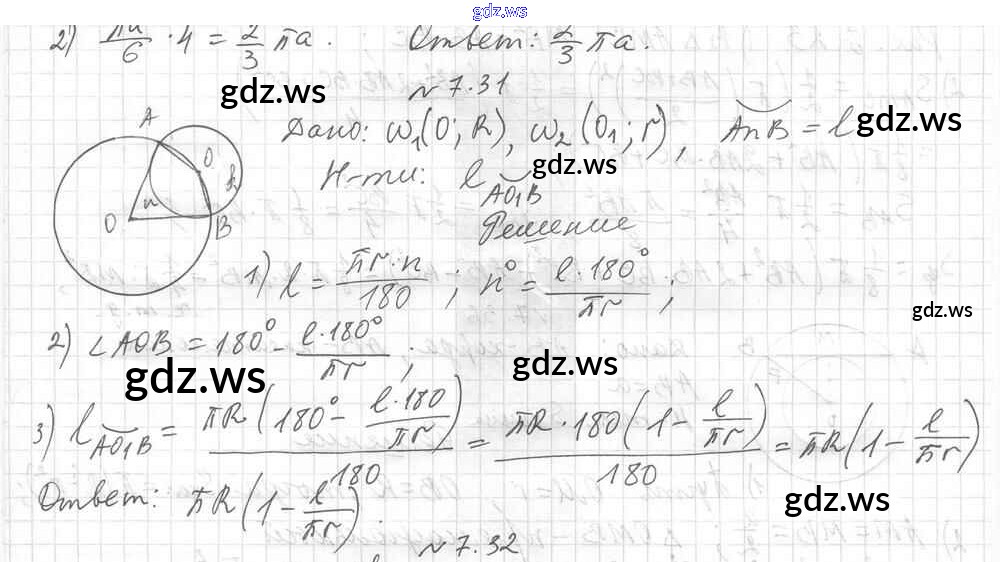 gdz.ws
2) πa/6 · 4 = 2/3 πa. Ответ: 2/3 πa.
gdz.ws
№ 7.31
Дано: ω₁(O; R), ω₂(O₁; r), AnB = l
gdz.ws
gdz.ws
A
O
n
B
O
Н-ти: l AO₁B
Решение
1) l = πr·n/180 ; n° = l·180°/πr ;
gdz.ws
2) ∠AOB = 180° - l·180°/πr ;
gdz.ws
gdz.ws
3) l AO₁B = πR(180° - l·180/πr)/180 = πR·180(1 - l/πr)/180 = πR(1 - l/πr)
Ответ: πR(1 - l/πr).
gdz.ws
№ 7.32